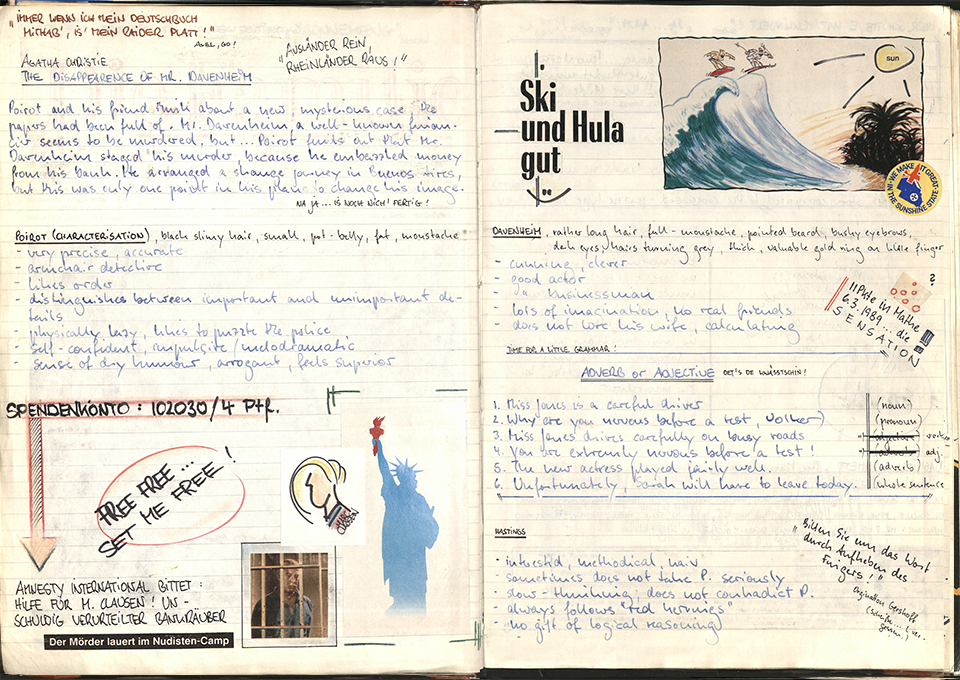 "IMMER WENN ICH MEIN DEUTSCHBUCH
MITHAB', IS' MEIN RAIDER PLATT!"
AXEL, GO!
"AUSLÄNDER REIN,
RHEINLÄNDER RAUS!"
AGATHA CHRISTIE
THE DISAPPEARENCE OF MR. DAVENHEIM
Poirot and his friend think about a new, mysterious case the
papers had been full of. Mr. Davenheim, a well-known finan-
cier seems to be murdered, but... Poirot finds out that Mr.
Davenheim staged his murder, because he embazzled money
from his bank. He arranged a change journey in Buenos Aires,
but this was only one point in his plan to change his image.
NA JA... IS NOCH NICH' FERTIG!
POIROT (CHARACTERISATION), black slimy hair, small, pot-belly, fat, moustache
- very precise, accurate
- armchair detective
- likes order
- distinguishes between important and unimportant de-
tails
- physically lazy, likes to puzzle the police
- self-confident, impulsive/melodramatic
- sense of dry humour, arrogant, feels superior
SPENDENKONTO: 102030/4 Pff.
FREE FREE...
SET ME FREE!
MARC
CLAUSEN
AMNESTY INTERNATIONAL BITTET:
HILFE FÜR M. CLAUSEN! UN-
SCHULDIG VERURTEILTER BANKRÄUBER
Der Mörder lauert im Nudisten-Camp
Ski
und Hula
gut
sun
WE MAKE IT GREAT
IN THE SUNSHINE STATE
DAVENHEIM, rather long hair, full-moustache, pointed beard, bushy eyebrows,
dark eyes, hairs turning grey, thick, valuable gold ring on little finger
- cunning, clever
- good actor
- " businessman
- lots of imagination, no real friends
- does not love his wife, calculating
?
11 Pkte in Mathe
6.3.1989... die
SENSATION!
TIME FOR A LITTLE GRAMMAR!
ADVERB or ADJECTIVE DET'S DE KWÄSSTSCHIN!
1. Miss Jones is a careful driver (noun)
2. Why are you nervous before a test, Volker? (pronoun)
3. Miss Jones drives carefully on busy roads adjective verb
4. You are extremly nervous before a test! adverb adj.
5. The new actress played fairly well. (adverb)
6. Unfortunately, Sarah will have to leave today. (whole sentence)
HASTINGS
- interest'd, methodical, naiv
- sometimes does not take P. seriously
- slow-thinking, does not contradict P.
- always follows "red herrings"
- no gift of logical reasoning
"Bitten Sie um das Wort
durch Aufheben des
Fingers!"